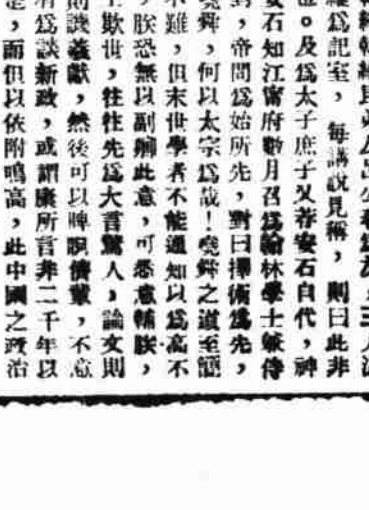 維爲記室，每講說見稱，則曰此非
也。及爲太子庶子又荐安石自代，神
安石知江甯府數月召爲翰林學士兼侍
對，帝問爲始所先，對曰擇術爲先，
堯舜，何以太宗爲哉！堯舜之道至簡
不難，但末世學者不能通知以爲高不
，朕恐無以副卿此意，可悉意輔朕，
欺世，往往先爲大言驚人，論文則
則譏義獻，然後可以睥睨儕輩，不意
有爲談新政，或謂康所言非二千年以
是，而但以依附鳴高，此中國之政治